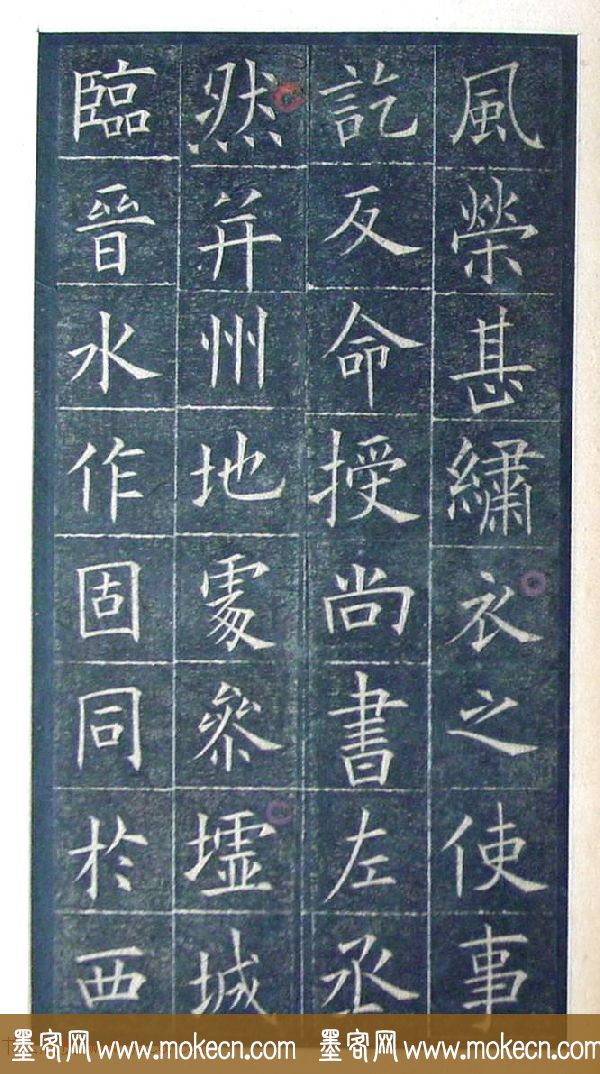 風榮甚繡衣之使事
訖反命授尚書左丞
然并州地處參墟城
臨晉水作固同於西
墨客网 www.mokecn.com 墨客网 www.mokecn.com